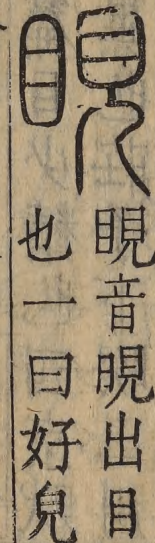 睍
睍音晛出目
也一曰好皃